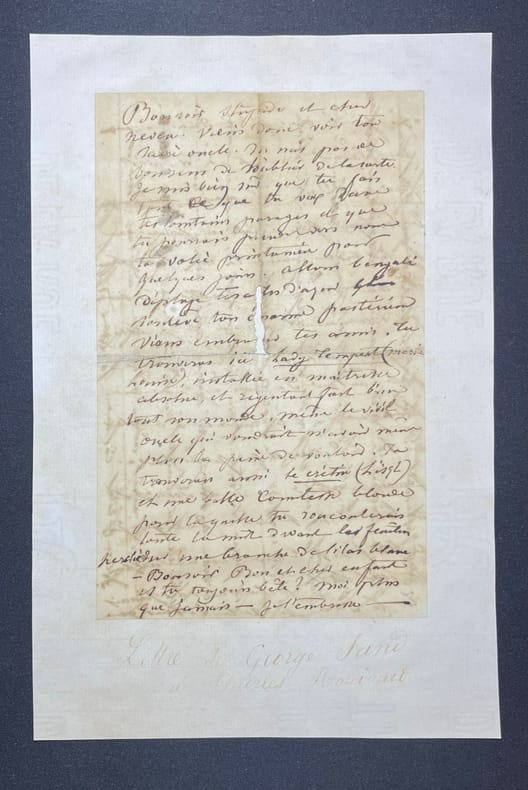 Bonsoir stupide et cher
neveu. Viens donc voir ton
oncle. Tu n'as pas
besoin de t'oublier de la sorte
Je suis bien sûr que tu fais
tout ce que tu veux dans
tes lointains parages et que
tu pourrais prendre vers nous
ta volée printanière pour
quelques jours. allons bengali
déploye tes ailes d'azur
soulève ton énorme postérieur
Viens embrasser tes amis. tu
trouveras ici Lady Tempest (marie
louise, installée en maîtresse
absolue, et régentant fort bien
tout son monde, même le vieil
oncle qui voudrait n'avoir même
plus la peine de vouloir. Tu
trouveras aussi le crétin (Liszt)
et une belle Comtesse blonde
pour laquelle tu roucouleras
toute la nuit durant
sur une branche de lilas blanc
— Bonsoir Bon et cher enfant
es tu toujours bête? moi plus
que jamais — je t'embrasse —
Lettre de George Sand
à Charles